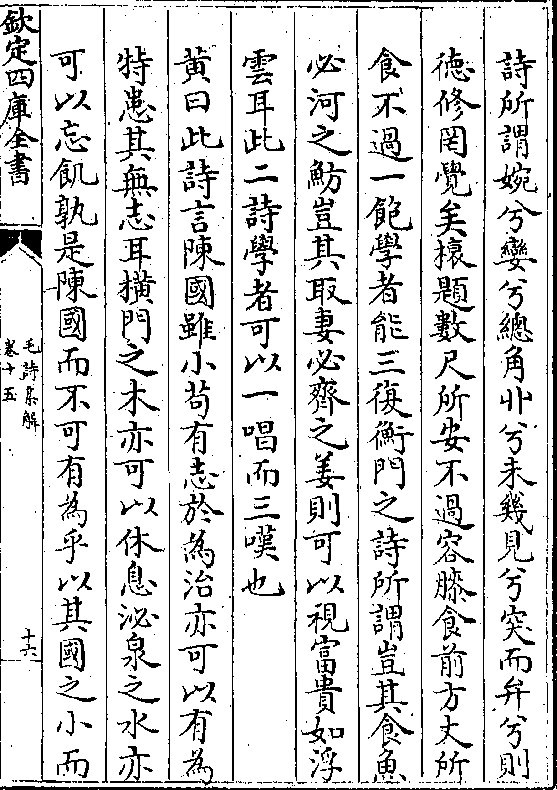 詩所謂婉兮孌兮總角丱兮未幾見兮突而弁兮則
徳修罔覺矣榱題數尺所安不過容膝食前方丈所
食不過一飽學者能三復衡門之詩所謂豈其食魚
必河之魴豈其取妻必齊之姜則可以視富貴如浮
雲耳此二詩學者可以一唱而三嘆也
黄曰此詩言陳國雖小苟有志於為治亦可以有為
特患其無志耳横門之木亦可以休息泌泉之水亦
可以忘飢孰是陳國而不可有為乎以其國之小而
欽定四庫全書
毛詩集解
卷十五
十六